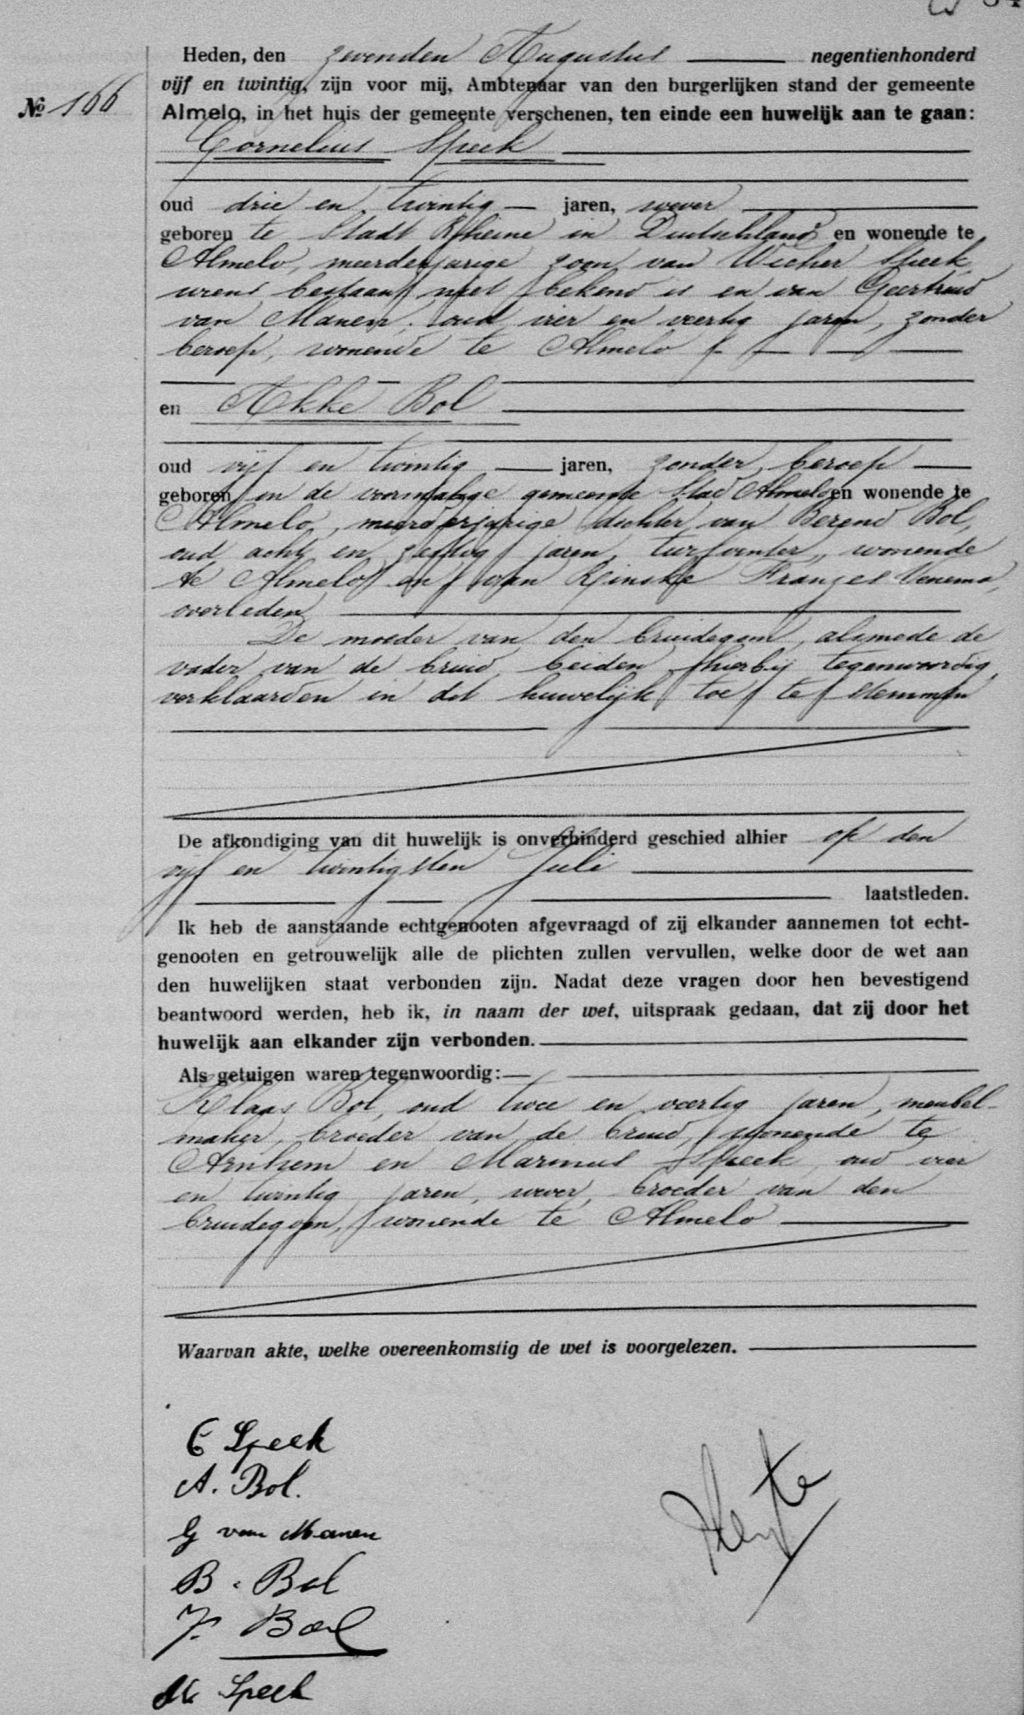 Heden, den zevenden Augustus negentienhonderd
vijf en twintig, zijn voor mij, Ambtenaar van den burgerlijken stand der gemeente
№ 166
Almelo, in het huis der gemeente verschenen, ten einde een huwelijk aan te gaan:
Cornelius Speek
oud drie en twintig jaren, wever
geboren te Stadt Rheine in Deutschland en wonende te
Almelo, meerderjarige zoon van Wicher Speek,
wiens bestaan niet bekend is en van Geertruid
van Manen, oud vier en veertig jaren, zonder
beroep, wonende te Almelo
en Akke Bol
oud vijf en twintig jaren, zonder beroep
geboren in de voormalige gemeente Stad Almelo en wonende te
Almelo, meerderjarige dochter van Berend Bol,
oud acht en zestig jaren, turfventer, wonende
te Almelo en van Rinske Franzes Venema,
overleden
De moeder van den bruidegom, alsmede de
vader van de bruid, beiden hierbij tegenwoordig,
verklaarden in dit huwelijk toe te stemmen
De afkondiging van dit huwelijk is onverhinderd geschied alhier op den
vijf en twintigsten Juli
laatstleden.
Ik heb de aanstaande echtgenooten afgevraagd of zij elkander aannemen tot echt-
genooten en getrouwelijk alle de plichten zullen vervullen, welke door de wet aan
den huwelijken staat verbonden zijn. Nadat deze vragen door hen bevestigend
beantwoord werden, heb ik, in naam der wet, uitspraak gedaan, dat zij door het
huwelijk aan elkander zijn verbonden.
Als getuigen waren tegenwoordig:
Klaas Bol, oud twee en veertig jaren, meubel-
maker, broeder van de bruid, wonende te
Arnhem en Marinus Speek, oud vier
en twintig jaren, wever, broeder van den
bruidegom, wonende te Almelo
Waarvan akte, welke overeenkomstig de wet is voorgelezen.
C Speek
A. Bol.
G van Manen
B. Bol
K. Bol
M. Speek